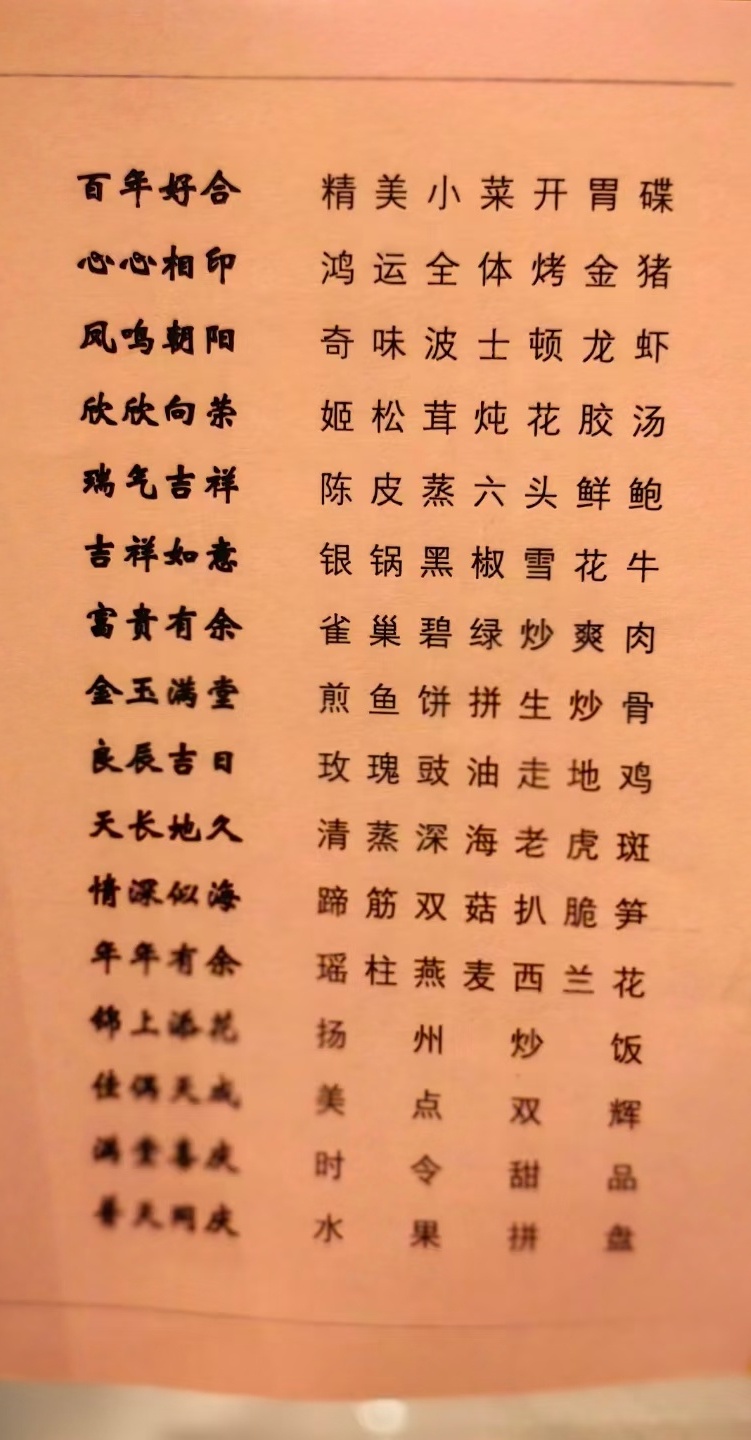 百年好合 精美小菜开胃碟
心心相印 鸿运全体烤金猪
凤鸣朝阳 奇味波士顿龙虾
欣欣向荣 姬松茸炖花胶汤
瑞气吉祥 陈皮蒸六头鲜鲍
吉祥如意 银锅黑椒雪花牛
富贵有余 雀巢碧绿炒爽肉
金玉满堂 煎鱼饼拼生炒骨
良辰吉日 玫瑰豉油走地鸡
天长地久 清蒸深海老虎斑
情深似海 蹄筋双菇扒脆笋
年年有余 瑶柱燕麦西兰花
锦上添花 扬州炒饭
佳偶天成 美点双辉
满堂喜庆 时令甜品
普天同庆 水果拼盘